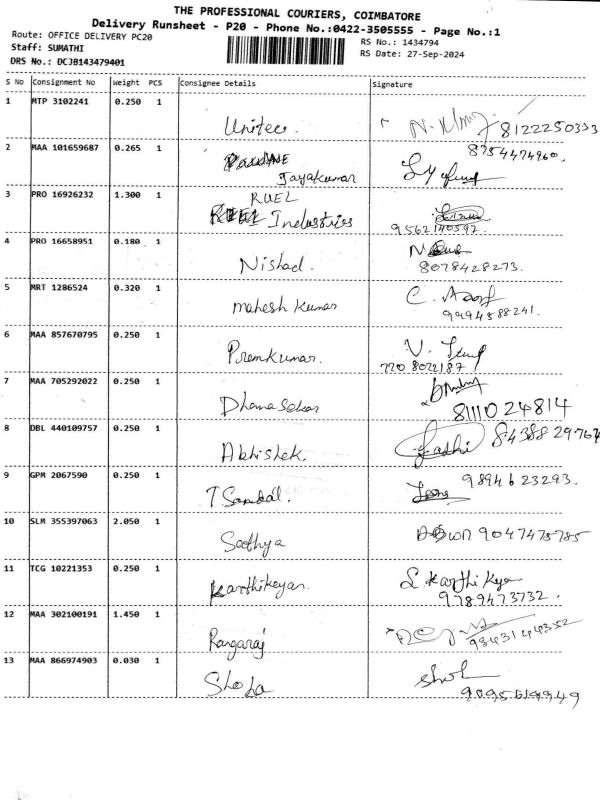 THE PROFESSIONAL COURIERS, COIMBATORE
Delivery Runsheet - P20 - Phone No.:0422-3505555 - Page No.:1
Route: OFFICE DELIVERY PC20
Staff: SUMATHI
DRS No.: DCJB143479401
RS No.: 1434794
RS Date: 27-Sep-2024
S No Consignment No Weight PCS Consignee Details Signature
1 MTP 3102241 0.250 1 Unitec 8122250333
2 MAA 101659687 0.265 1 Jayakumar 8754474960.
3 PRO 16926232 1.300 1 RUEL Industries 9562140597.
4 PRO 16658951 0.180 1 Nishad. 8078428273.
5 MRT 1286524 0.320 1 mahesh kumar 9494588241.
6 MAA 857670795 0.250 1 Premkumar. 720 8022187
7 MAA 705292022 0.250 1 Dhanasekar 8111024814
8 DBL 440109757 0.250 1 Abhishek.
9 GPM 2067590 0.250 1 98946 23293.
10 SLM 355397063 2.050 1 Sathya 9047475785
11 TCG 10221353 0.250 1 Karthikeyan. 9789473732.
12 MAA 302100191 1.450 1 Rangaraj 9843144352
13 MAA 866974903 0.030 1 Shoba